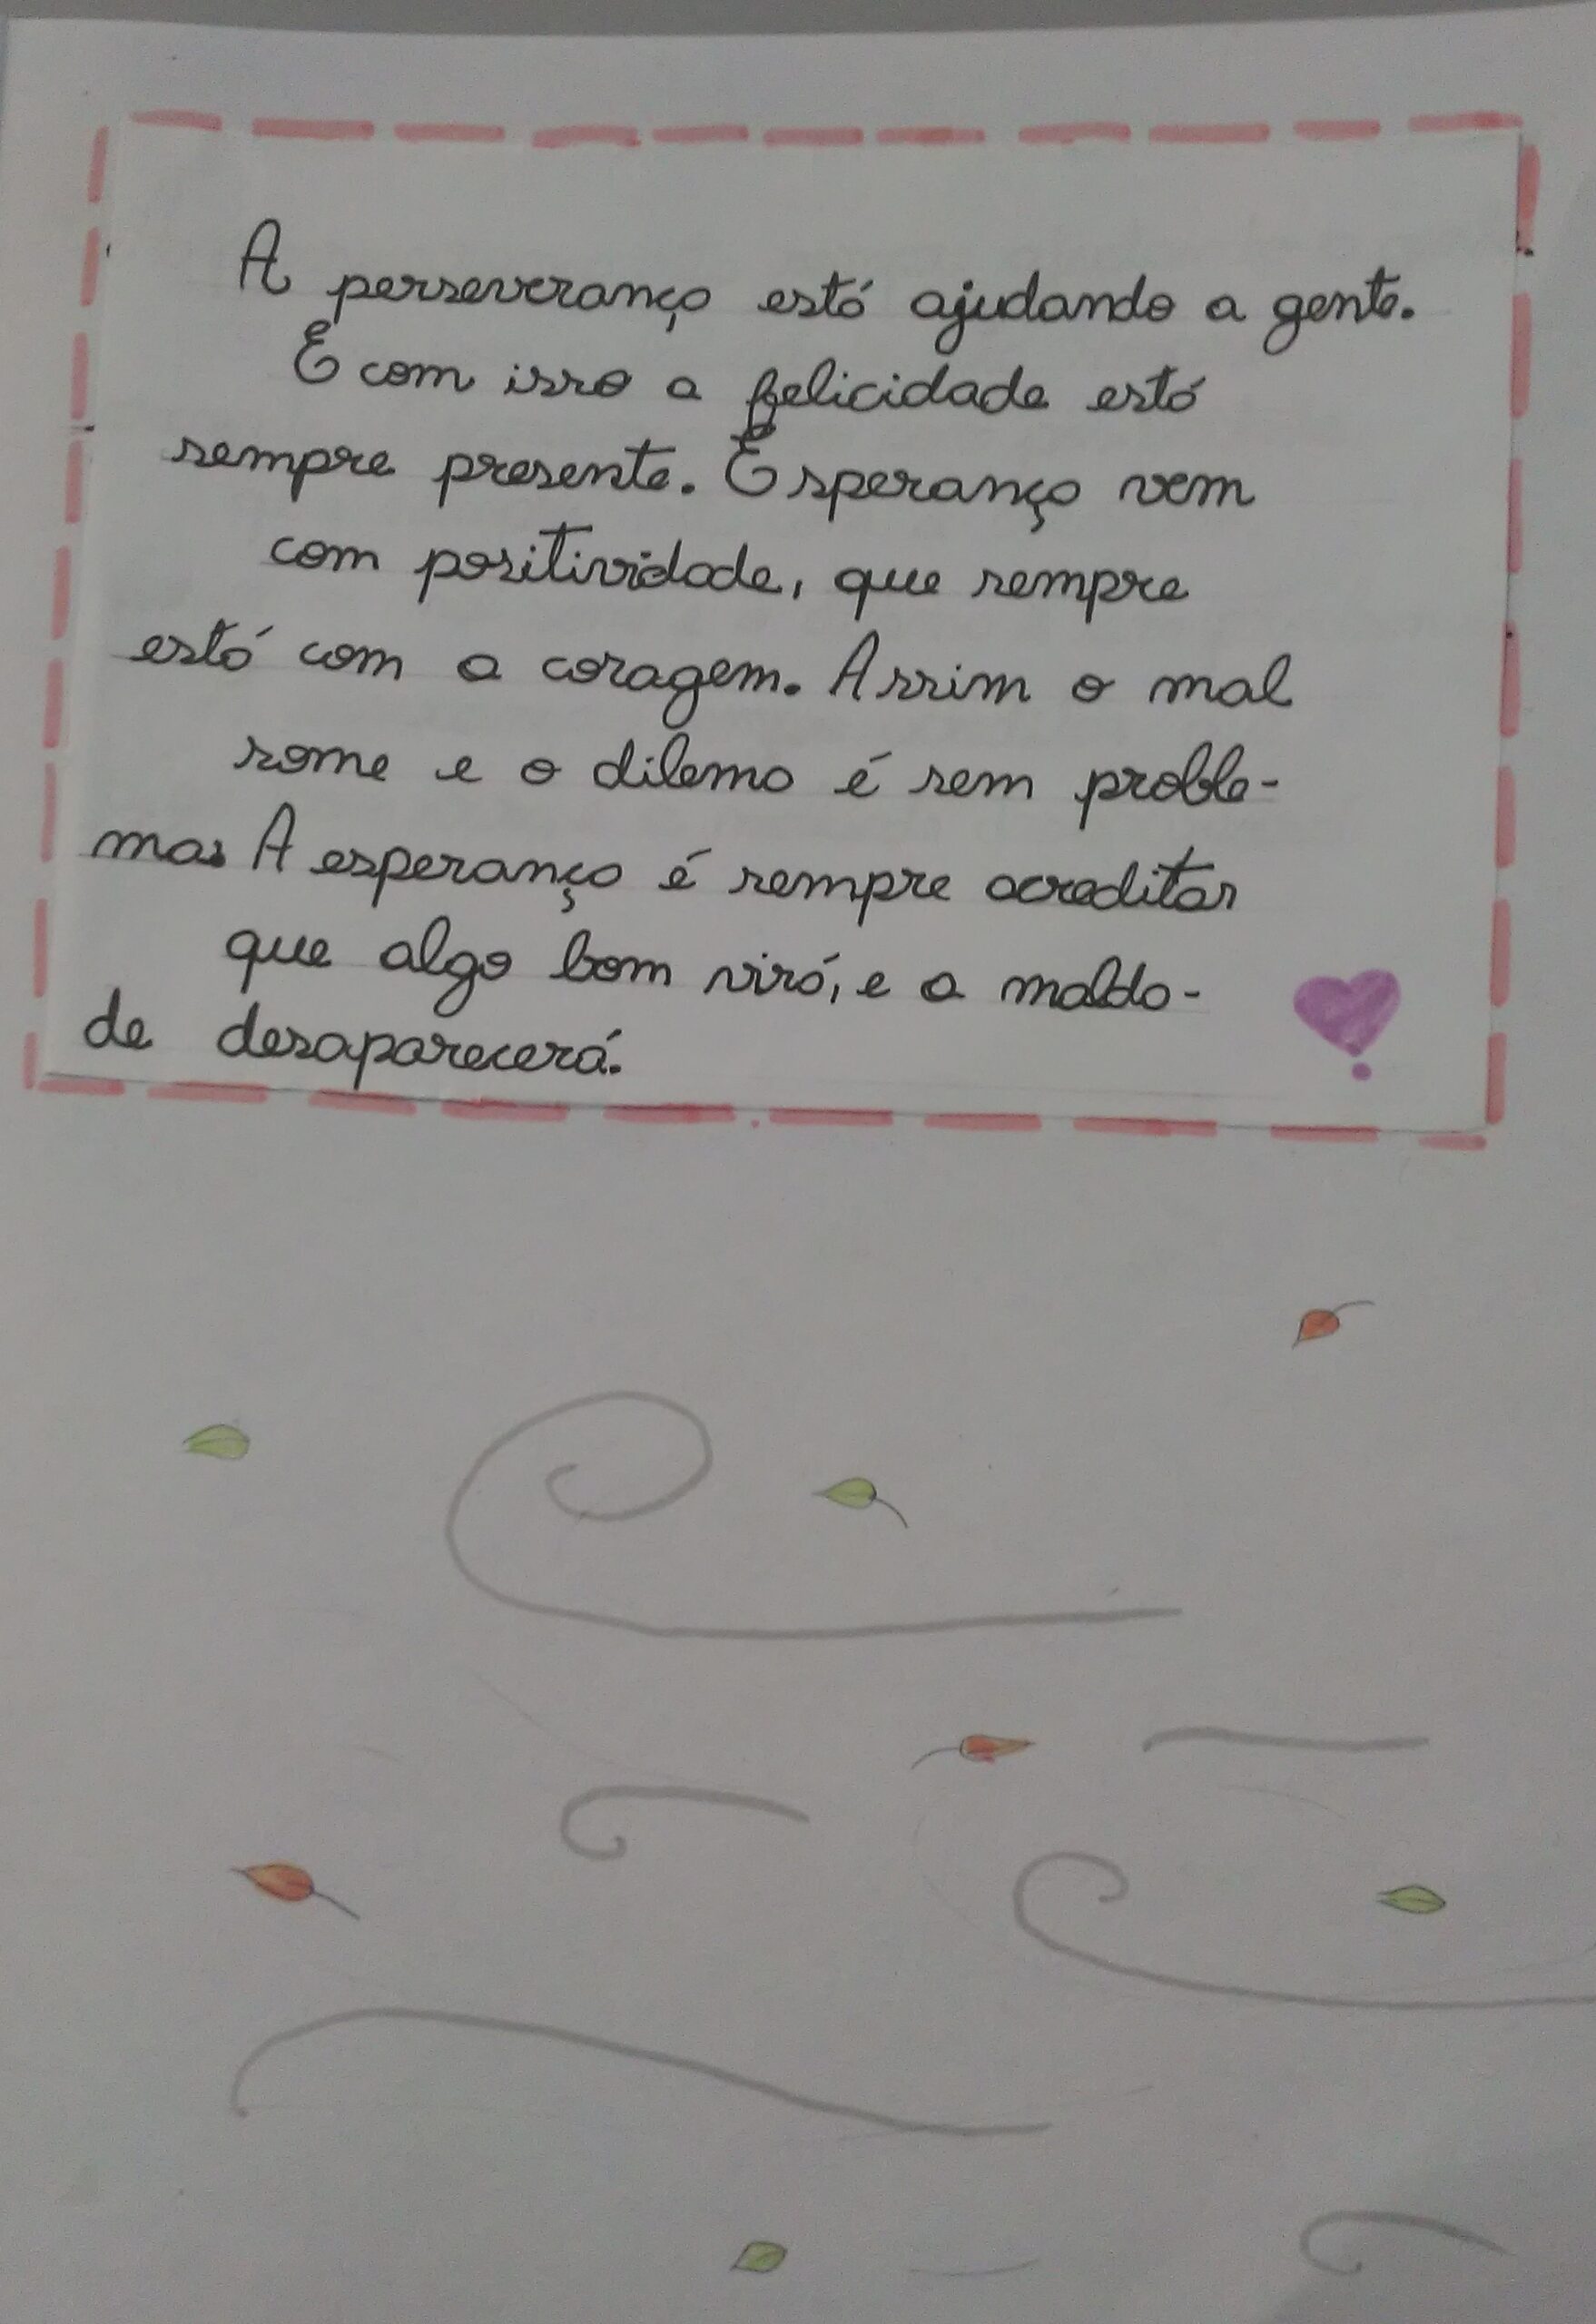 A perseverança está ajudando a gente.
E com isso a felicidade está
sempre presente. Esperança vem
com positividade, que sempre
está com a coragem. Assim o mal
some e o dilema é sem proble-
mas A esperança é sempre acreditar
que algo bom virá, e a malda-
de desaparecerá.